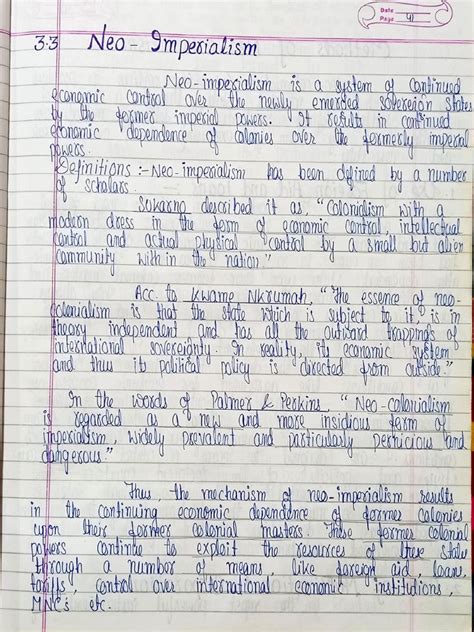 Date
Page 41
3.3 Neo-Imperialism
Neo-imperialism is a system of continued
economic control over the newly emerded sovereign states
by the former imperial powers. It results in continued
economic dependence of colonies over the formerly imperial
powers.
Definitions :- Neo-imperialism has been defined by a number
of scholars.
Sukarno described it as, "Colonialism with a
modern dress in the form of economic control, intellectual
control and actual physical control by a small but alien
community with in the nation."
Acc. to Kwame Nkrumah, "The essence of neo-
colonialism is that the state which is subject to it, is in
theory independent and has all the outward trappings of
international sovereignty. In reality, its economic system
and thus its political policy is directed from outside."
In the words of Palmer & Perkins, "Neo-colonialism
is regarded as a new and more insidious form of
imperialism, widely prevalent and particularly pernicious and
dangerous."
Thus, the mechanism of neo-imperialism results
in the continuing economic dependence of former colonies
upon their former colonial masters. These former colonial
powers continue to exploit the resources of these states
through a number of means, like foreign aid, loans,
tariffs, control over international economic institutions,
MNC's etc.